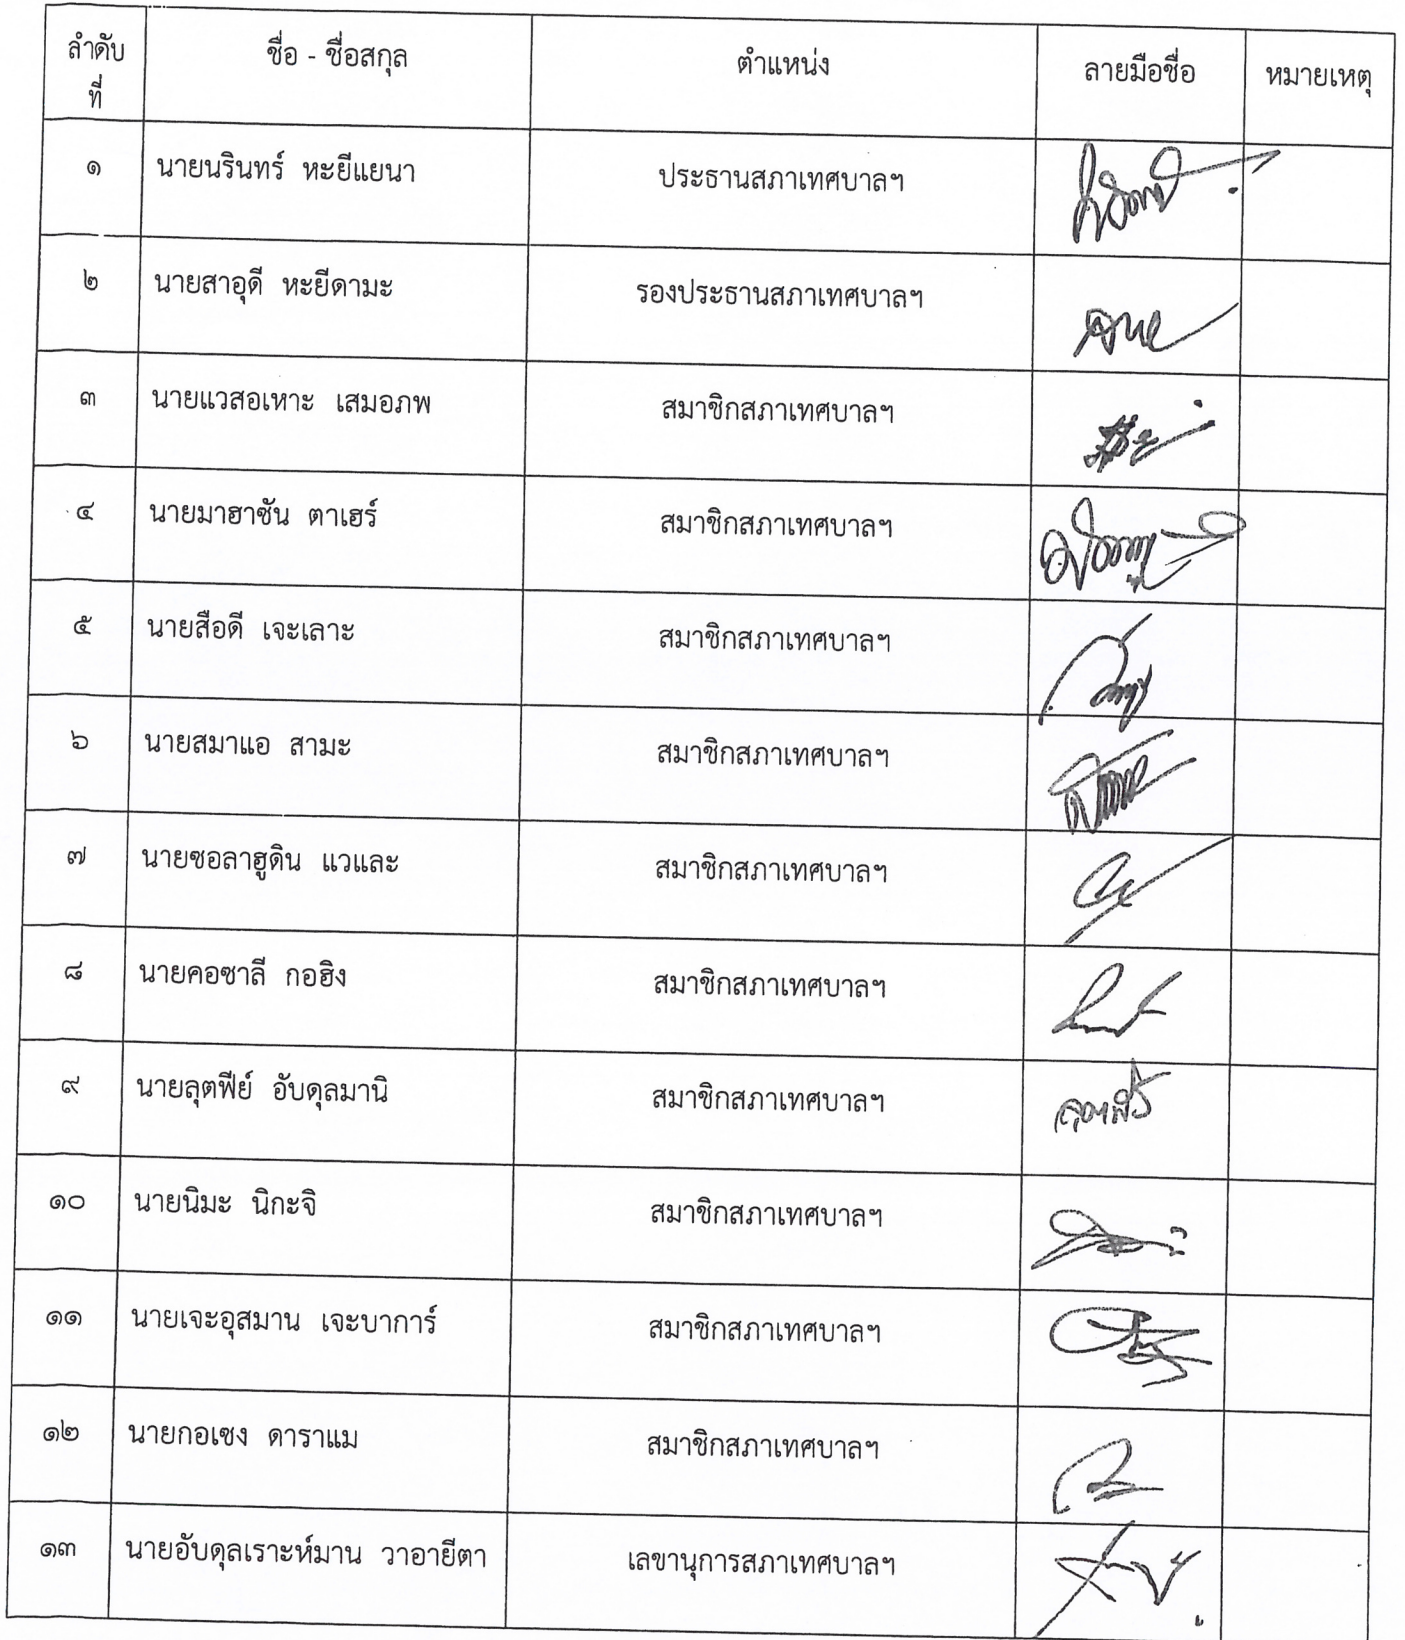 ลำดับ ชื่อ - ชื่อสกุล ตำแหน่ง ลายมือชื่อ หมายเหตุ
ที่
๑ นายนรินทร์ หะยีแยนา ประธานสภาเทศบาลฯ
๒ นายสาอุดี หะยีดามะ รองประธานสภาเทศบาลฯ
๓ นายแวสอเหาะ เสมอภพ สมาชิกสภาเทศบาลฯ
๔ นายมาฮาซัน ตาเฮร์ สมาชิกสภาเทศบาลฯ
๕ นายสือดี เจะเลาะ สมาชิกสภาเทศบาลฯ
๖ นายสมาแอ สามะ สมาชิกสภาเทศบาลฯ
๗ นายซอลาฮูดิน แวและ สมาชิกสภาเทศบาลฯ
๘ นายคอซาลี กอฮิง สมาชิกสภาเทศบาลฯ
๙ นายลุตฟีย์ อับดุลมานิ สมาชิกสภาเทศบาลฯ
๑๐ นายนิมะ นิกะจิ สมาชิกสภาเทศบาลฯ
๑๑ นายเจะอุสมาน เจะบาการ์ สมาชิกสภาเทศบาลฯ
๑๒ นายกอเซง ดาราแม สมาชิกสภาเทศบาลฯ
๑๓ นายอับดุลเราะห์มาน วาอายีตา เลขานุการสภาเทศบาลฯ